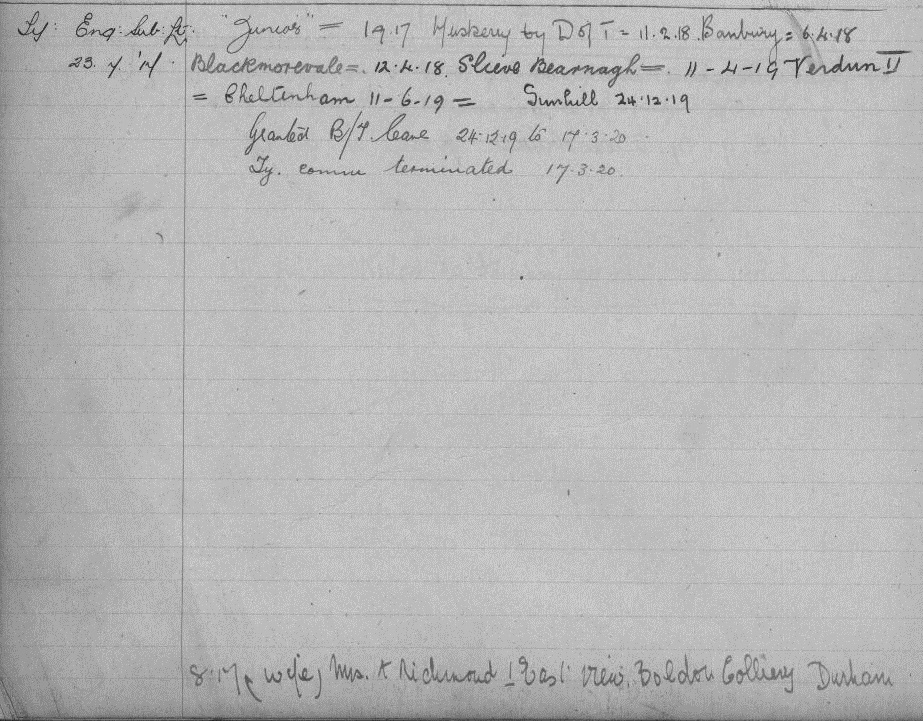 Ty: Eng: Sub: Lt: "Junior" = 19.17 Muskerry by D of T = 11.2.18. Banbury = 6.4.18
23. 7. '17. Blackmorevale =. 12.4.18. Slieve Bearnagh =. 11-4-19 Verdun II
= Cheltenham 11-6-19 = Sunhill 24.12.19
Granted B/T leave 24.12.19 to 17.3.20.
Ty. comm terminated 17.3.20.
8.17 (wife) Mrs. Richmond 1 East View, Boldon Colliery Durham